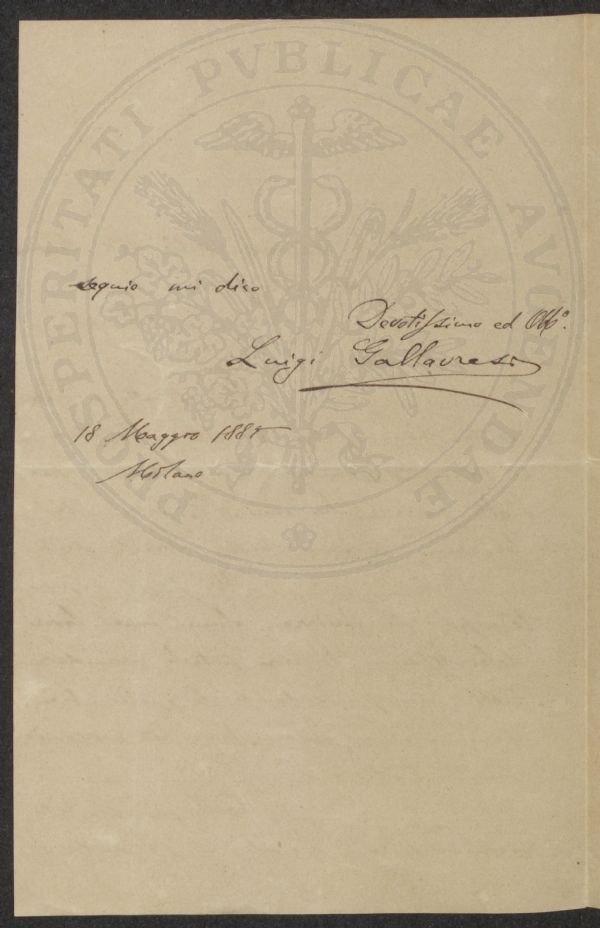 PROSPERITATI PVBLICAE AVGENDAE
sequio mi dico
Devotissimo ed Obbº.
Luigi Gallavresi
18 Maggio
Milano